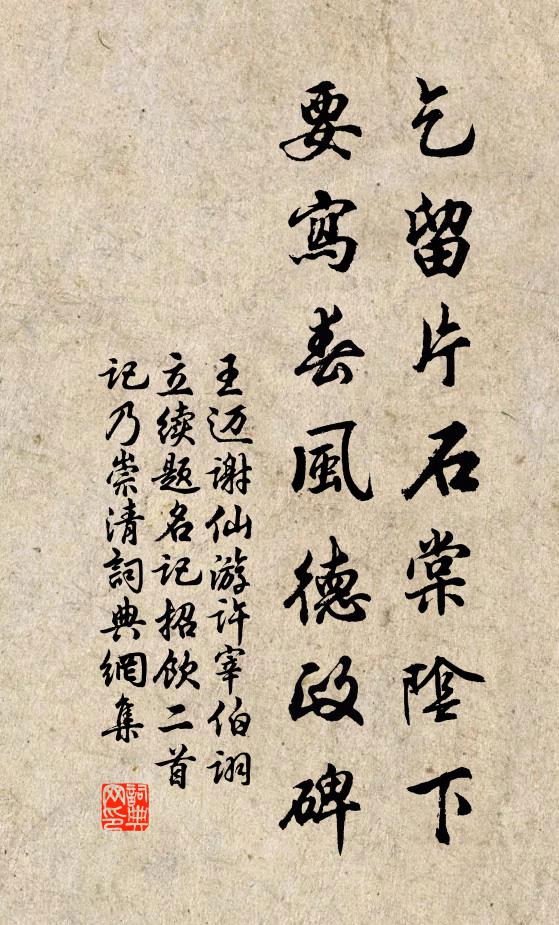 乞留片石棠陰下
要寫春風德政碑
王迈谢仙游许宰伯诩
立续题名记招饮二首
记乃崇清詞典網集
詞典网印